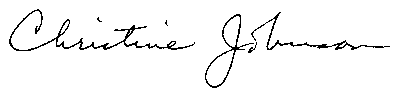 Christine Johnson